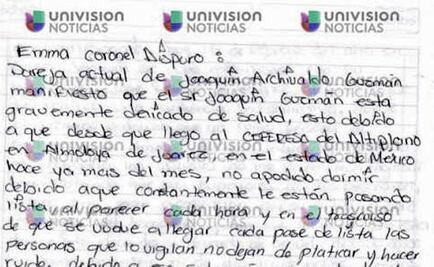 UNIVISION NOTICIAS UNIVISION NOTICIAS UNIVISION NOTICIAS
Emma coronel Dispuro :
Pareja actual de Joaquin Archivaldo Guzmán
manifiesto que el sr Joaquin Guzmán esta
gravemente delicado de salud, esto debido
a que desde que llego al CEFERESO del Altiplano
en Almoloya de Juarez, en el estado de México
hace ya mais del mes, no apodido dormir
debido aque constantemente le están pasando
lista, al parecer cada hora y en el trascurso
de que se vuelve allegar cada pase de lista las
personas que lo vigilan no dejan de platicar y hacer
ruido, debido a